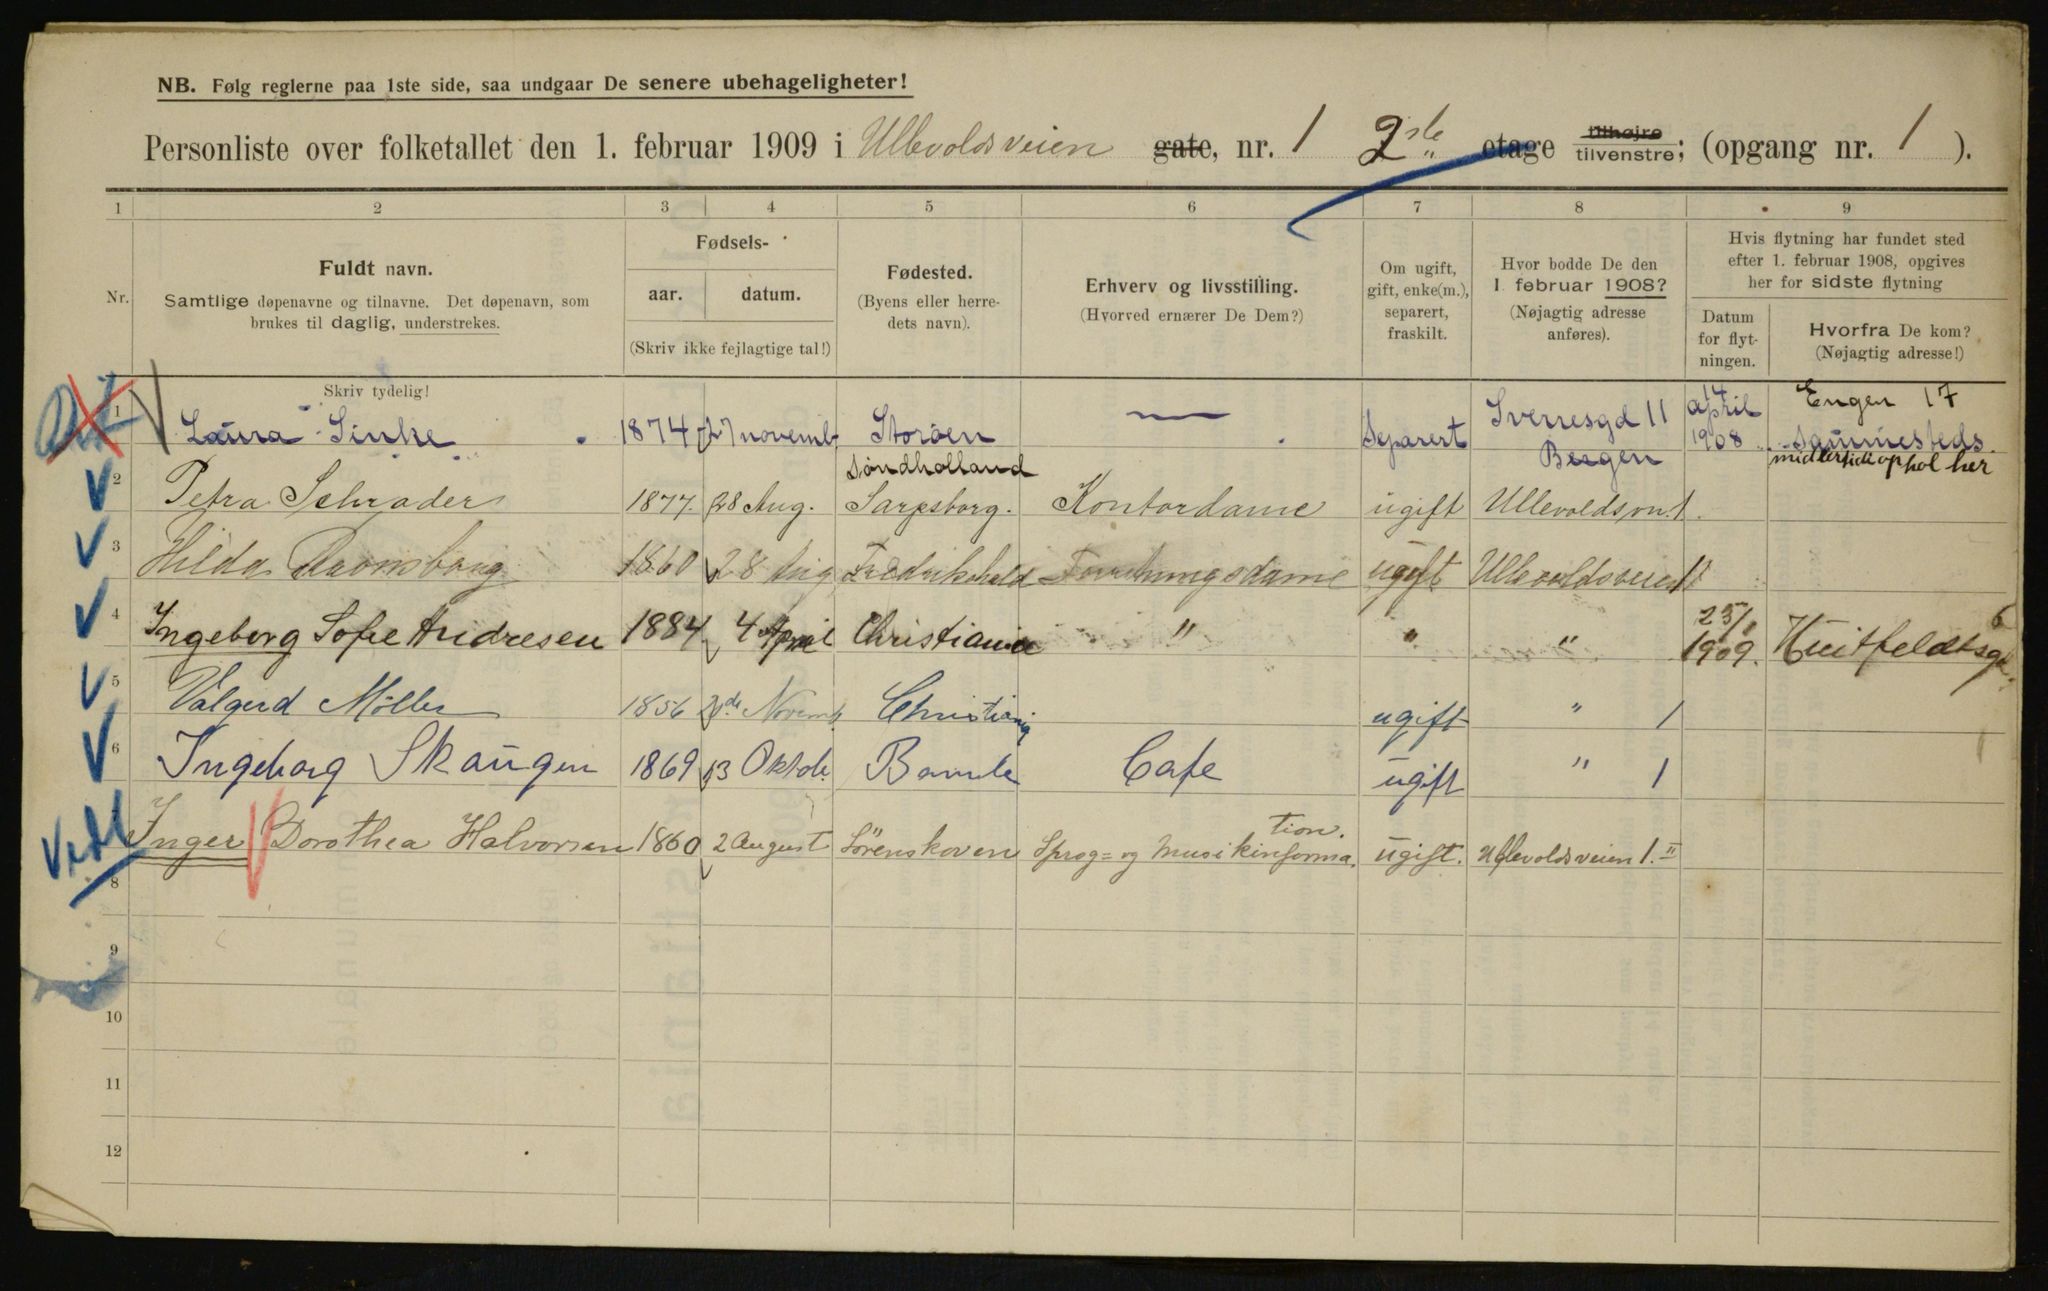 NB. Følg reglerne paa 1ste side, saa undgaar De senere ubehageligheter!
Personliste over folketallet den 1. februar 1909 i Ullevoldsveien gate, nr. 1 2 etage tilhøjre tilvenstre; (opgang nr. 1 ).
1 2 3 4 5 6 7 8 9
Nr.
Fuldt navn.
Samtlige døpenavne og tilnavne. Det døpenavn, som
brukes til daglig, understrekes.
Skriv tydelig!
Fødsels-
aar. datum.
(Skriv ikke fejlagtige tal!)
Fødested.
(Byens eller herre-
dets navn).
Erhverv og livsstilling.
(Hvorved ernærer De Dem?)
Om ugift,
gift, enke(m.),
separert,
fraskilt.
Hvor bodde De den
1. februar 1908?
(Nøjagtig adresse
anføres).
Hvis flytning har fundet sted
efter 1. februar 1908, opgives
her for sidste flytning
Datum
for flyt-
ningen.
Hvorfra De kom?
(Nøjagtig adresse!)
1 Laura Sinke 1874 27 novemb. Storöen Söndholland — Separert Sverresgd 11 Bergen 14 april 1908 Engen 17 sammesteds. midlertidi ophol her
2 Petra Schrader 1877. 28 Aug. Sarpsborg. Kontordame ugift Ullevoldsvn. 1.
3 Hilda 1860 28 Aug Fredrikshald Forretningsdame ugift Ullevoldsveien 1
4 Ingeborg Sofie Andresen 1884 4 April Christiania " " " 25/1 1909. Huitfeldtsgt. 6
5 Valgerd Möller 1856 Novemb. Christiania ugift " 1
6 Ingeborg Skaugen 1869 13 Oktob. Bamle Cafe ugift " 1
Inger Dorothea Halvorsen 1860 2 August Sörenskoven Sprog- og Musikinformation. ugift. Ullevoldsveien 1. II
8
9
10
11
12